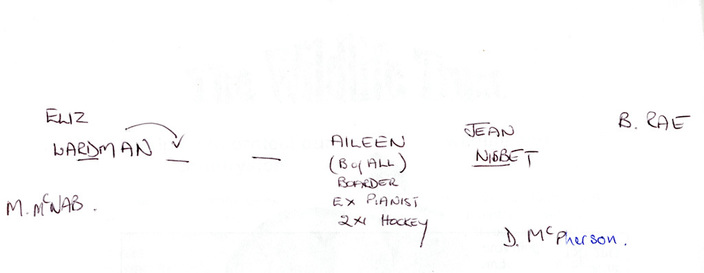 ELIZ
WARDMAN
AILEEN
(B of ALL)
BOARDER
EX PIANIST
2XI HOCKEY
JEAN
NISBET
B. RAE
M. McNAB.
D. McPherson.